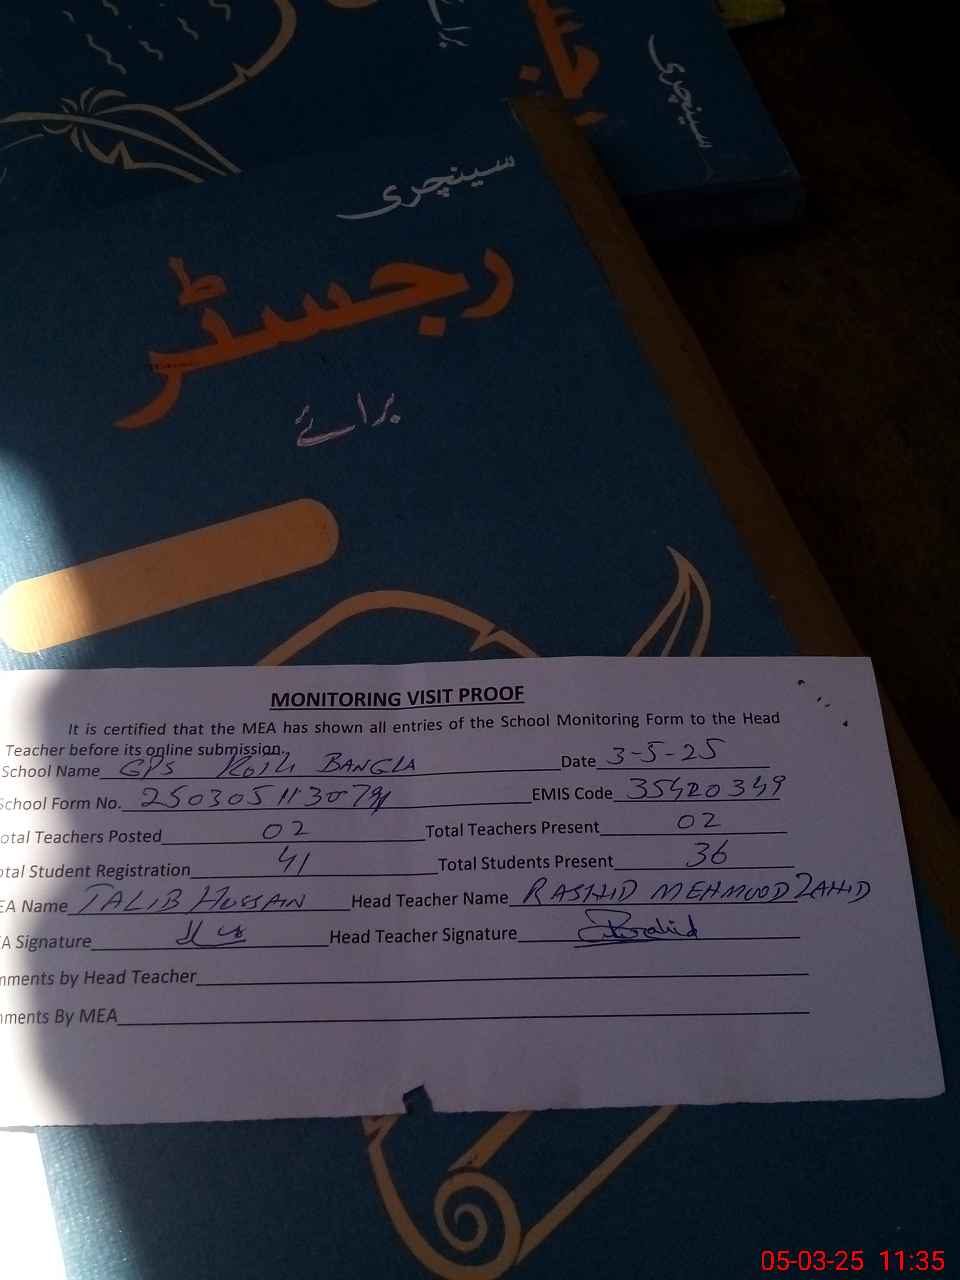 برائے
سینچری
سینچری
رجسٹر
برائے
MONITORING VISIT PROOF
It is certified that the MEA has shown all entries of the School Monitoring Form to the Head
Teacher before its online submission.
School Name GPS Kosh BANGLA Date 3-5-25
School Form No. EMIS Code 35420349
otal Teachers Posted 02 Total Teachers Present 02
otal Student Registration 41 Total Students Present 36
EA Name TALIB HUSSAN Head Teacher Name RASHID MEHMOOD ZAHID
A Signature Head Teacher Signature
mments by Head Teacher
mments By MEA
05-03-25 11:35